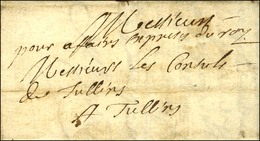 Messieurs
pour affaires expresses du roy
Messieurs Les Consuls
de Tullins
A Tullins